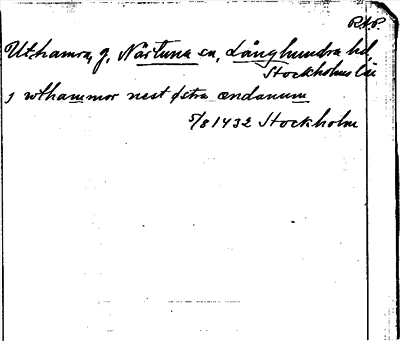 RAP.
Uthamra, g. Närtuna sn, Långhundra hd,
Stockholms län
j wthammor nest østra ændanum
5/8 1432 Stockholm